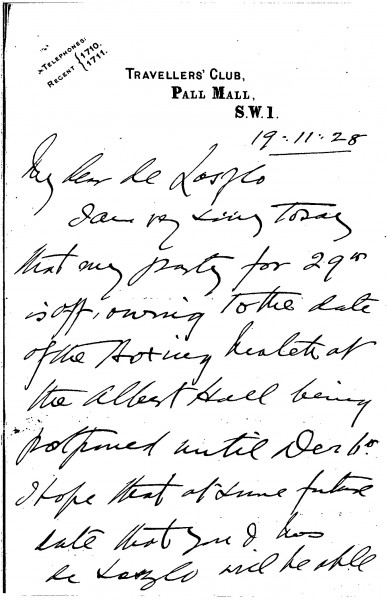 TELEPHONES:
REGENT { 1710. 1711.
TRAVELLERS' CLUB,
PALL MALL,
S.W.1.
19.11.28
My dear de Laszlo
I am very sorry to say
that my party for 29th
is off, owing to the date
of the Boxing match at
the Albert Hall being
postponed until Dec 6th
I hope that at some future
date that you & Mrs
de Laszlo will be able